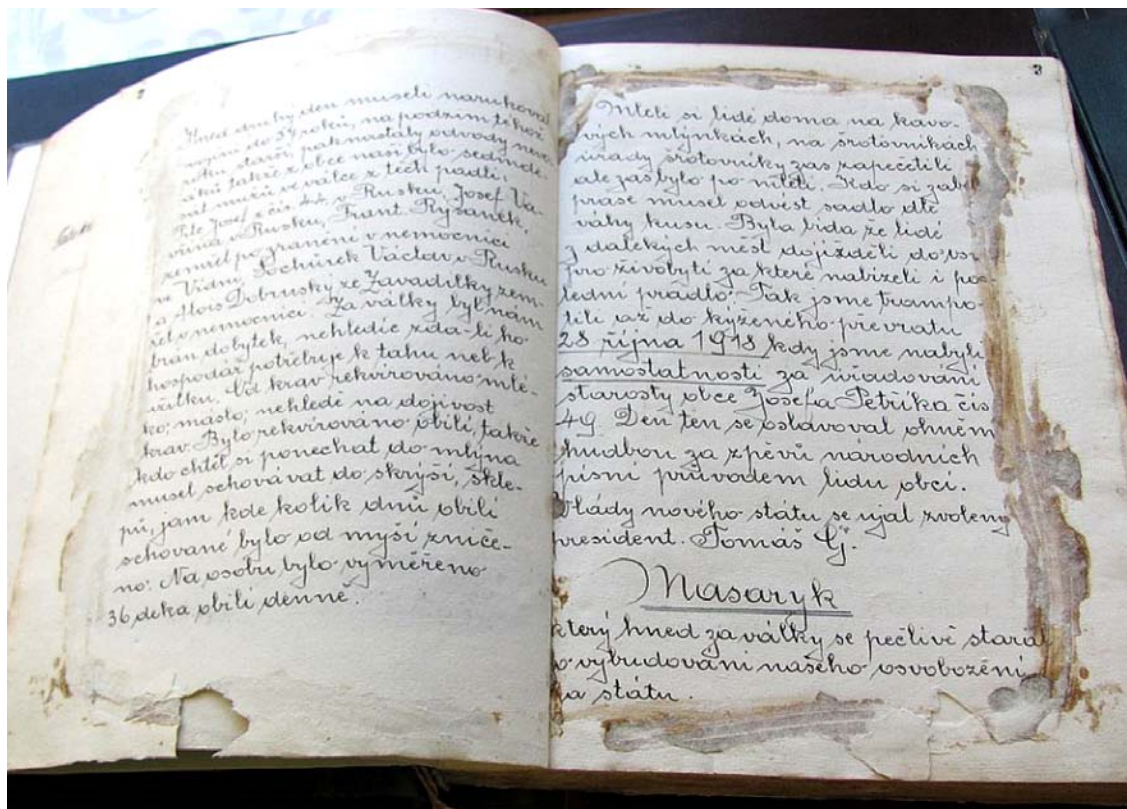 Hned druhý den museli narukovat
vojíni do 37 roků, na podzim téhož
roku starší, pak nastaly odvody nové
takže z obce naší bylo sedmde-
sát mužů ve válce z těch padli:
Josef z čís. 44 v Rusku, Josef Va-
v Rusku, Frant. Rýsánek,
zemřel po zranění v nemocnici
ve Vídni, Sochůrek Václav v Rusku
a Alois Dobruský ze Zavadilky zem-
řel v nemocnici. Za války byl nám
brán dobytek, nehledíc zda-li ho
hospodář potřebuje k tahu neb k
užitku. Od krav rekvirováno mlé-
ko, máslo, nehledě na dojivost
krav. Bylo rekvirováno obilí, takže
kdo chtěl si ponechat do mlýna
musel schovávat do skrýší, skle-
pů, jam kde kolik dnů obilí
schované bylo od myší zniče-
no. Na osobu bylo vyměřeno
36 deka obilí denně.
3
Mleli si lidé doma na kávo-
vých mlýnkách, na šrotovníkách
úřady šrotovníky zas zapečetili
ale zas bylo po mletí. Kdo si zabil
prase musel odvést sádlo dle
váhy kusu. Byla bída že lidé
z dalekých měst dojížděli do vsi
pro živobytí za které nabízeli i pos-
lední prádlo. Tak jsme trampo-
tili až do kýženého převratu
28 října 1918 kdy jsme nabyli
samostatnosti za úřadování
starosty obce Josefa Petříka čís
49. Den ten se oslavoval ohněm
hudbou za zpěvů národních
písní průvodem lidu obcí.
Vlády nového státu se ujal zvolený
president. Tomáš G.
Masaryk
který hned za války se pečlivě staral
o vybudování našeho osvobození
a státu.